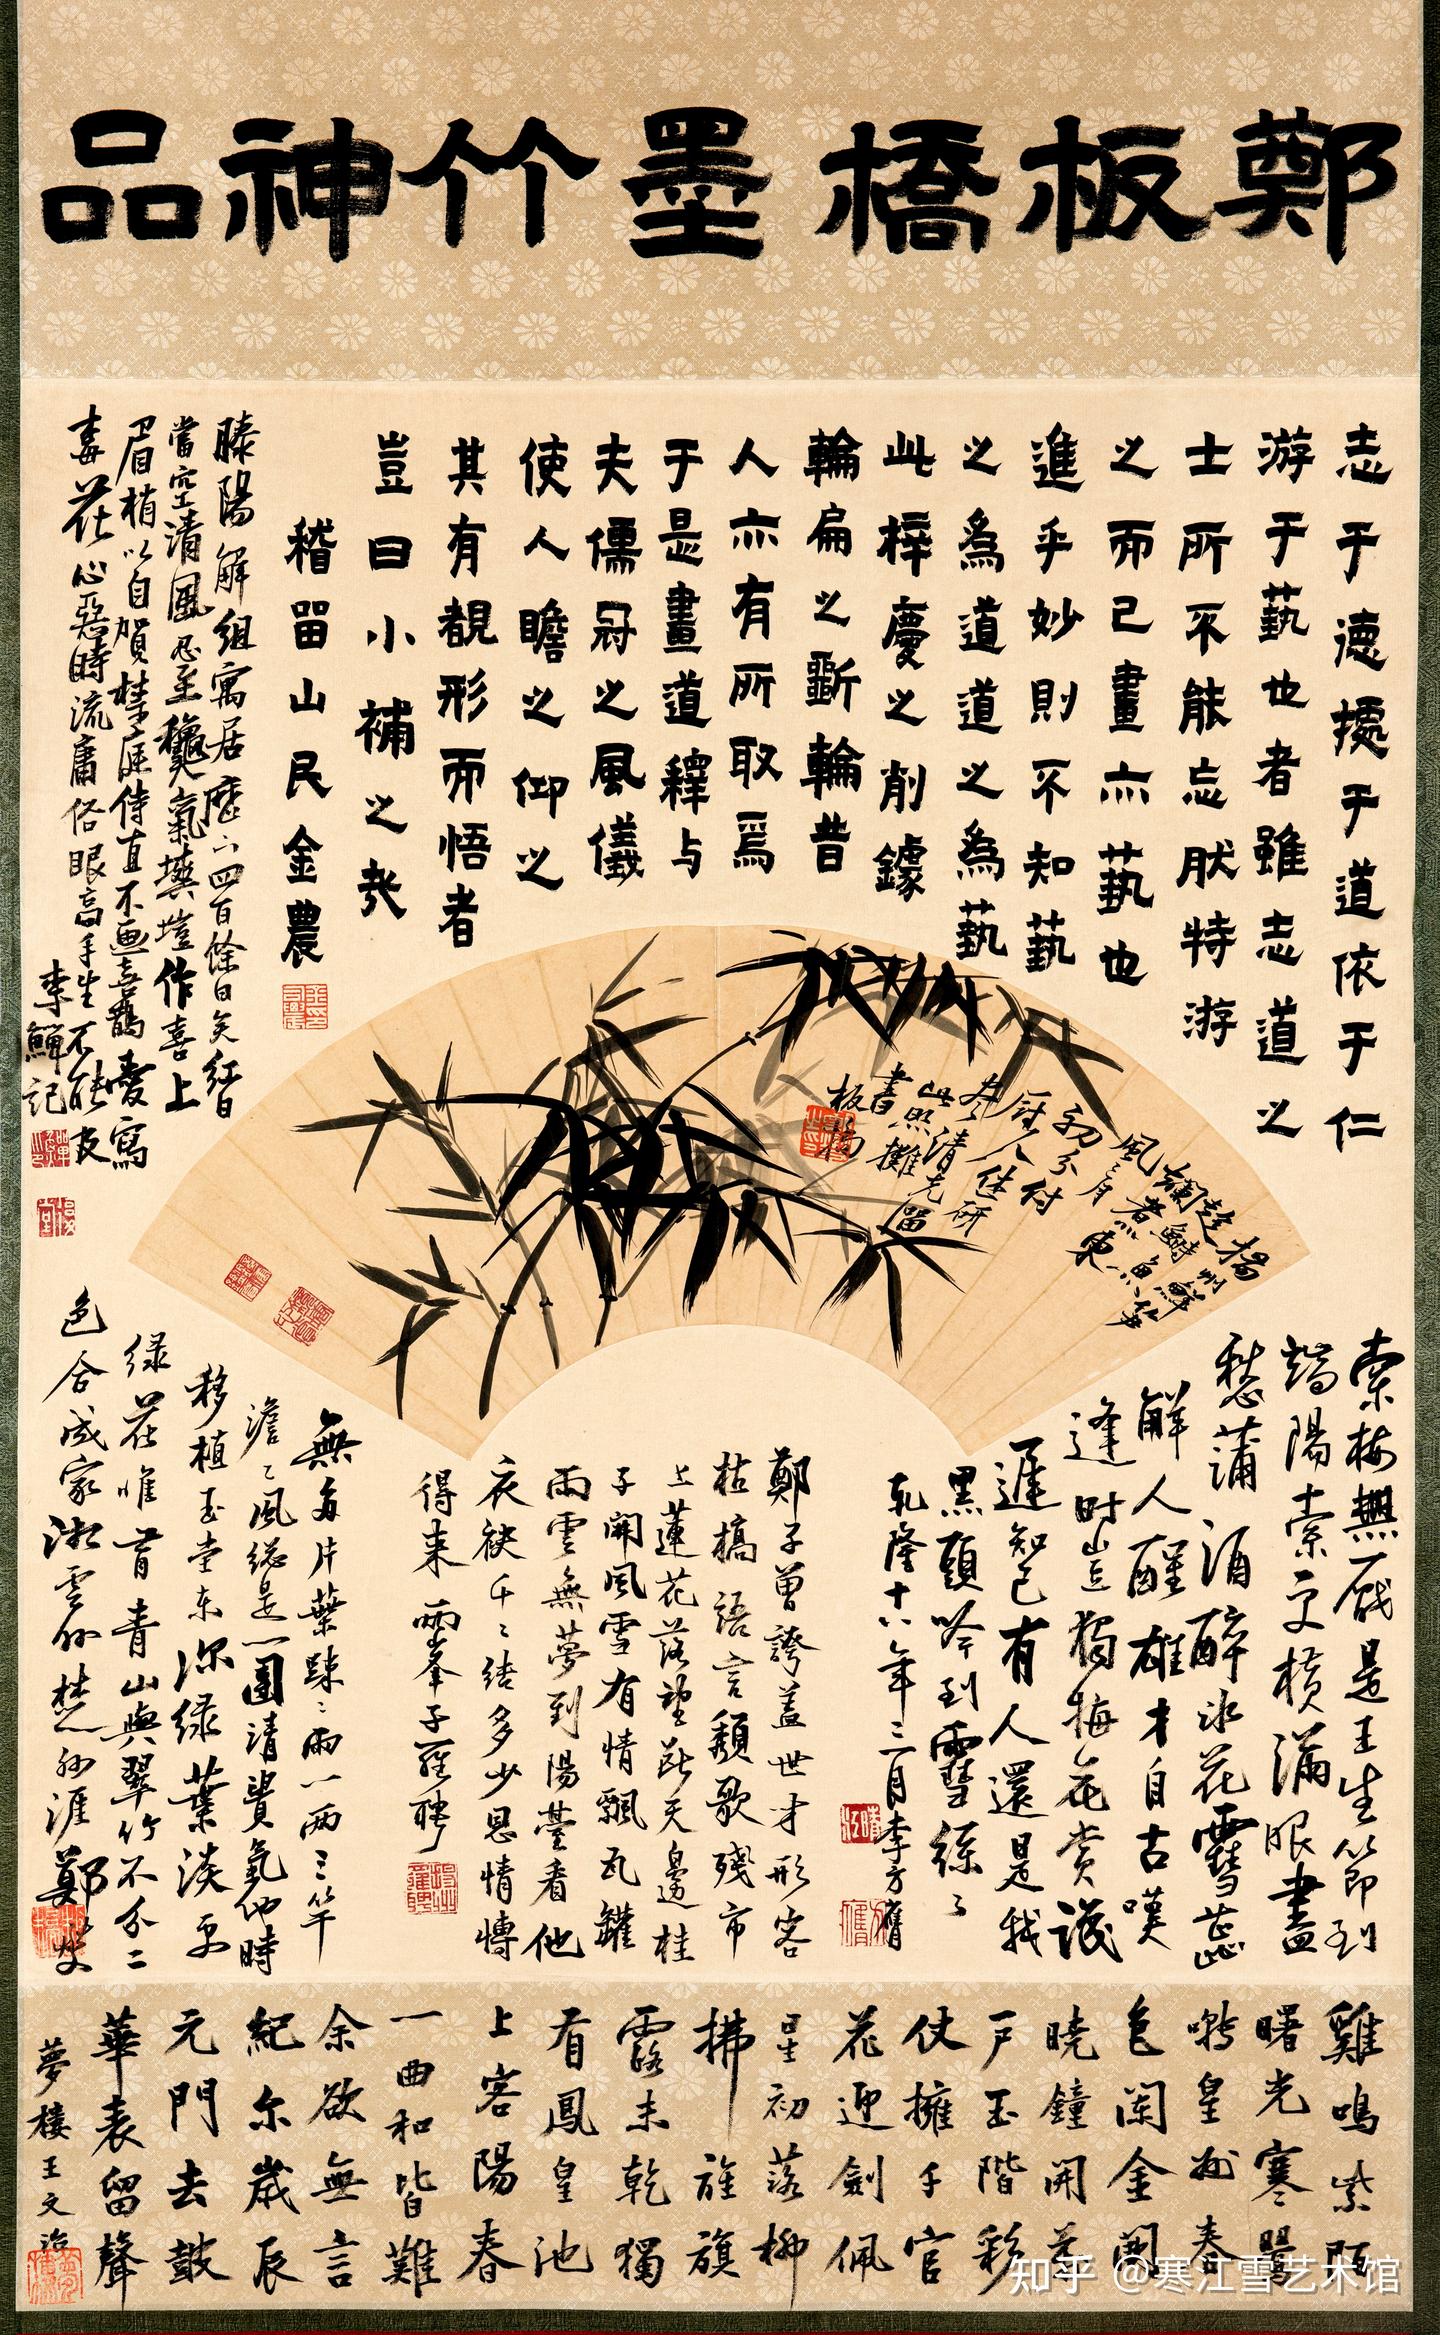 鄭板橋墨竹神品
志于德據于道依于仁
游于藝也者雖志道之
士所不能忘肰特游
之而已畫亦藝也
進乎妙則不知藝
之為道道之為藝
此梓慶之削鐻
輪扁之斲輪昔
人亦有所取焉
于是畫道釋与
夫儒冠之風儀
使人瞻之仰之
其有覩形而悟者
豈曰小補之㢤
稽留山民金農
滕陽解組寓居歷下四百餘日矣紅日
當空清風忽至穐氣填塏作喜上
眉梢以自賀桂庭侍直不画喜鵲愛寫
毒花心惡時流庸俗眼高手生不能
李鱓記
揚州鮮筍
趁鰣魚
爛煮東
風三月
初分付
廚人休
斫盡清光留
此照攤
書板橋
索梅無厭是王生節到
端陽索更橫滿眼盡
愁蒲酒醉冰花雪蕊
解人醒雄才自古嘆
逢時豈獨梅花賞識
遲知己有人還是我
黑頭吟到雪絲絲
乾隆十八年三月李方膺
鄭子曾誇蓋世才形容
枯槁語言頹歌殘市
上蓮花落望斷天邊桂
子開風雪有情飄瓦罐
雨雲無夢到陽臺看他
衣袂千千結多少恩情博
得來 兩峯子羅聘
無多片葉踈踈雨一兩三竿
澹澹風總是一團清貴氣他時
移植玉堂東深綠葉淡
綠花唯看青山與翠竹不分二
色合成家湘雲外楚江涯鄭燮
雞鳴紫陌
曙光寒鶯
囀皇州春
色闌金闕
曉鐘開萬
戶玉階彩
仗擁千官
花迎劍佩
星初落柳
拂旌旗
露未乾獨
有鳳皇池
上客陽春
一曲和皆難
余欲無言
紀尔歲辰
元門去鼓
華表留聲
夢樓王文治
知乎 @寒江雪艺术馆